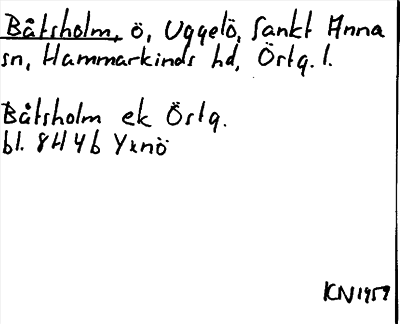 Båtsholm, ö, Uggelö, Sankt Anna
sn, Hammarkinds hd, Östg. l.
Båtsholm ek Östg.
bl. 8H 4b Yxnö
KN 1959